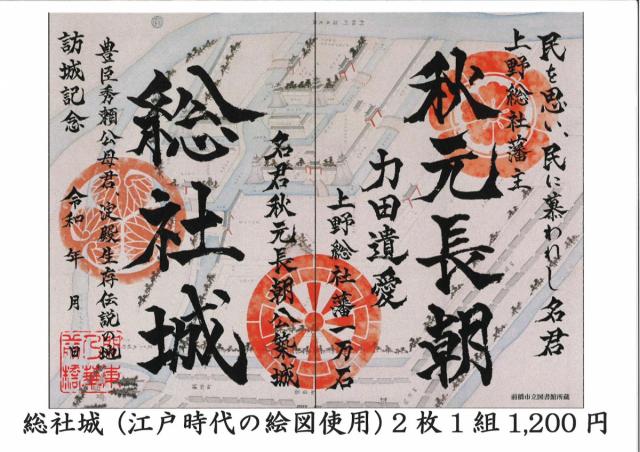 民を思い、民に慕われし名君
上野総社藩主
秋元長朝
力田遺愛
上野総社藩一万石
名君秋元長朝公築城
総社城
豊臣秀頼公母君、淀殿生存伝説の地
訪城記念
令和 年 月 日
前橋市立図書館所蔵
総社城(江戸時代の絵図使用)2枚1組1,200円